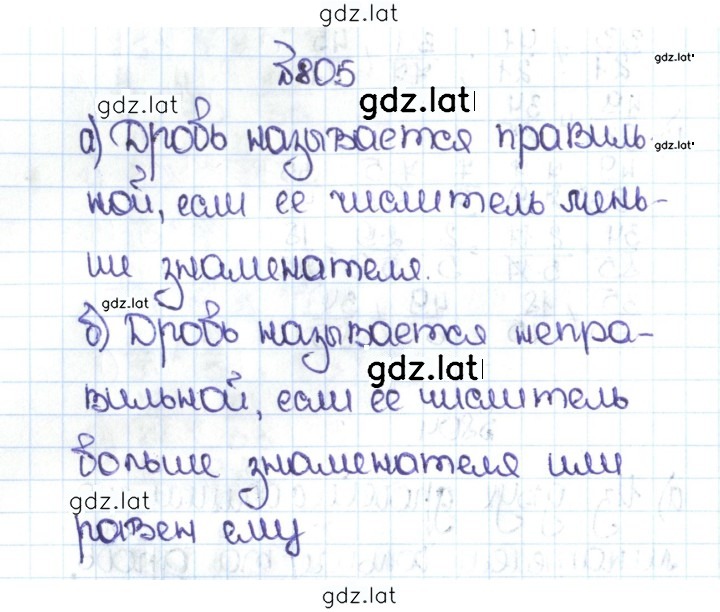 gdz.lat
№805
gdz.lat
gdz.lat
gdz.lat
а) Дробь называется правиль
gdz.lat
ной, если ее числитель мень-
ше знаменателя.
gdz.lat
б) Дробь называется непра-
gdz.lat
вильной, если ее числитель
больше знаменателя или
gdz.lat
равен ему
gdz.lat